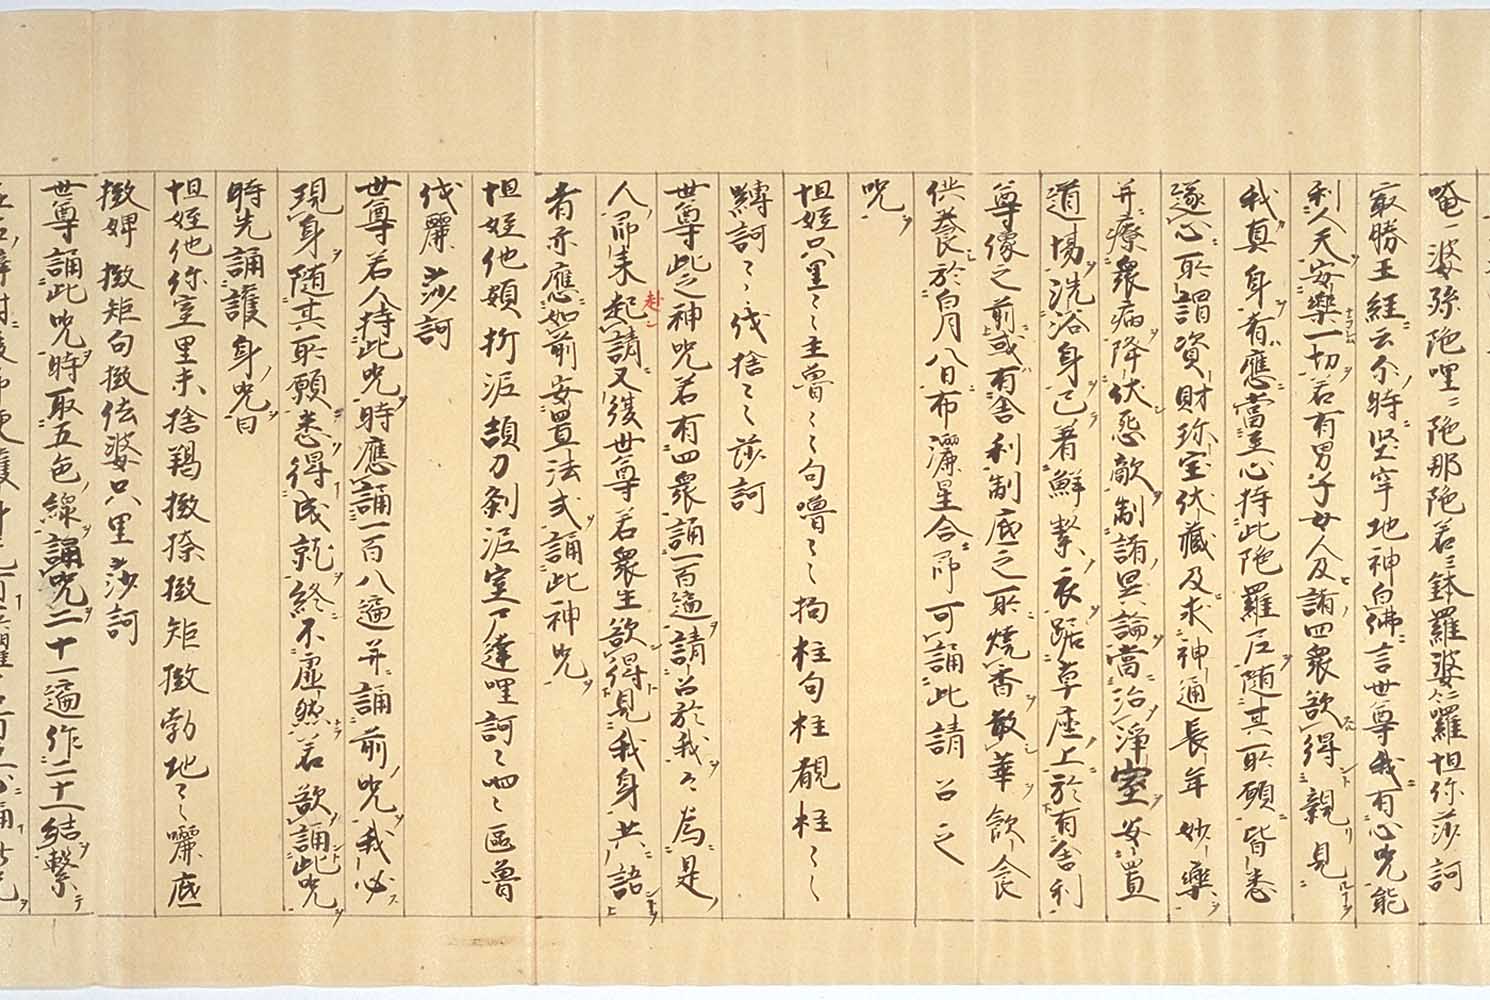 唵一婆弥陀哩二陀那陀若三鉢羅婆仁羅怛你莎訶
最勝王経云尒時堅牢地神白佛言世尊我有心呪能
利人天安樂一切若有男子女人及諸四衆欲得親見
我真身者應當至心持此陀羅尼随其所願皆悉
遂心所謂資財珎宝伏蔵及求神通長年妙藥
并療衆病降伏惡敵制諸異論當治淨室安置
道場洗浴身已著鮮絜衣踞草座上於有舎利
尊像之前或有舎利制底之所燒香散華飲食
供養於白月八日布灑星合即可誦此請召之
呪
怛姪只里〻主魯〻〻句嚕〻〻拘柱句柱覩柱〻〻
縛訶〻〻伐捨〻〻莎訶
世尊此之神呪若有四衆誦一百遍請召於我〻為是
人即来起請又復世尊若衆生欲得見我身共語
赴
者亦應如前安置法式誦此神呪
怛姪他頞折泥頡力剎泥室尸達哩訶〻呬〻區魯
伐麗莎訶
世尊若人持此呪時應誦一百八遍并誦前呪我必
現身随其所願悉得成就終不虚然若欲誦此呪
時先誦護身呪曰
怛姪他你室里末捨羯㨖捺㨖矩㨖勃地〻囇底
㨖婢㨖矩句㨖佉婆只里莎訶
世尊誦此呪時取五色線誦呪二十一遍作二十一結繫